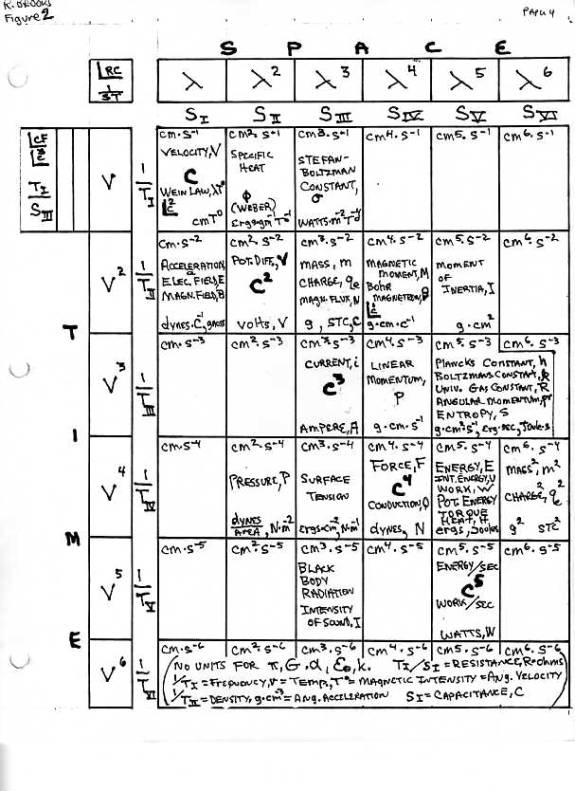 R. BROOKS
Figure 2
PAPER 4
S P A C E
LRC
1/ST
λ λ² λ³ λ⁴ λ⁵ λ⁶
S_I S_II S_III S_IV S_V S_VI
T_I
S_III
T I M E
ν 1/T_I
cm·s⁻¹
VELOCITY, V
C
WEIN LAW, λT°
cmT°
cm²·s⁻¹
SPECIFIC
HEAT
ϕ
(WEBER)
cm³·s⁻¹
STEFAN-
BOLTZMAN
CONSTANT,
σ
WATTS·m⁻²T⁻⁴
cm⁴·s⁻¹
cm⁵·s⁻¹
cm⁶·s⁻¹
ν² 1/T_II
cm·s⁻²
ACCELERATION
ELEC. FIELD, E
MAGN. FIELD, B
dynes·C⁻¹, gauss
cm²·s⁻²
POT. DIFF., V
C²
volts, V
cm³·s⁻²
MASS, m
CHARGE, qe
MAGN. FLUX, N
g, STC, C
cm⁴·s⁻²
MAGNETIC
MOMENT, M
Bohr
MAGNETRON, β
g·cm·c⁻¹
cm⁵·s⁻²
MOMENT
OF
INERTIA, I
g·cm²
cm⁶·s⁻²
ν³ 1/T_III
cm·s⁻³
cm²·s⁻³
cm³·s⁻³
CURRENT, i
C³
AMPERE, A
cm⁴·s⁻³
LINEAR
MOMENTUM,
P
g·cm·s⁻¹
cm⁵·s⁻³
PLANCKS CONSTANT, h
BOLTZMANS CONSTANT, k
UNIV. GAS CONSTANT, R
ANGULAR MOMENTUM, pr
ENTROPY, S
g·cm²s⁻¹, erg·sec, Joule·s
cm⁶·s⁻³
ν⁴ 1/T_IV
cm·s⁻⁴
cm²·s⁻⁴
PRESSURE, P
dynes/AREA, N·m⁻²
cm³·s⁻⁴
SURFACE
TENSION
ergs·cm⁻², N·m⁻¹
cm⁴·s⁻⁴
FORCE, F
C⁴
CONDUCTION, Q
dynes, N
cm⁵·s⁻⁴
ENERGY, E
INT. ENERGY, U
WORK, W
POT. ENERGY
TORQUE
HEAT, H
ergs, Joules
cm⁶·s⁻⁴
MASS², m²
CHARGE², qe²
g² STC²
ν⁵ 1/T_V
cm·s⁻⁵
cm²·s⁻⁵
cm³·s⁻⁵
BLACK
BODY
RADIATION
INTENSITY
OF SOUND, I
cm⁴·s⁻⁵
cm⁵·s⁻⁵
ENERGY/SEC
C⁵
WORK/SEC
WATTS, W
cm⁶·s⁻⁵
ν⁶ 1/T_VI
cm·s⁻⁶ cm²·s⁻⁶ cm³·s⁻⁶ cm⁴·s⁻⁶ cm⁵·s⁻⁶ cm⁶·s⁻⁶
(NO UNITS FOR π, G, α, ε₀, k. T_I/S_I = RESISTANCE, R=ohms
1/T_I = FREQUENCY, ν = TEMP., T° = MAGNETIC INTENSITY = ANG. VELOCITY
1/T_II = DENSITY, g·cm⁻³ = ANG. ACCELERATION S_I = CAPACITANCE, C)